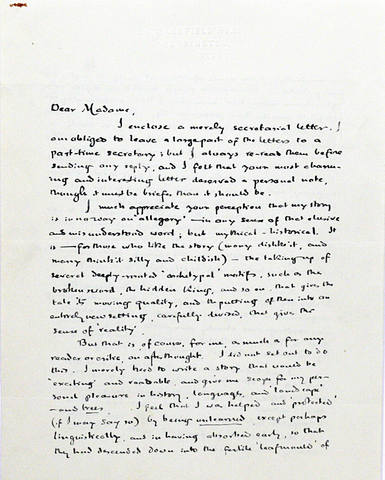 Dear Madame,
I enclose a merely secretarial letter. I
am obliged to leave a large part of the letters to a
part-time secretary; but I always re-read them before
sending any reply, and I felt that your most charm-
ing and interesting letter deserved a personal note,
though it must be briefer than it should be.
I much appreciate your perception that my story
is in no way an 'allegory' — in any sense of that elusive
and misunderstood word; but mythical-historical. It
is — for those who like the story (many dislike it, and
many think it silly and childish) — the taking-up of
several deeply-rooted 'archetypal' motifs, such as the
broken sword, the hidden king, and so on, that gives the
tale its moving quality, and the putting of them into an
entirely new setting, carefully devised, that give the
sense of 'reality'.
But that is, of course, for me, as much as for any
reader or critic, an afterthought. I did not set out to do
this. I merely tried to write a story that would be
'exciting' and readable, and give me scope for my per-
sonal pleasure in history, languages, and 'landscape'
— and trees. I feel that I was helped and 'protected'
(if I may say so) by being unlearned, except perhaps
linguistically, and in having absorbed early, so that
they had descended down into the fertile 'leafmould' of